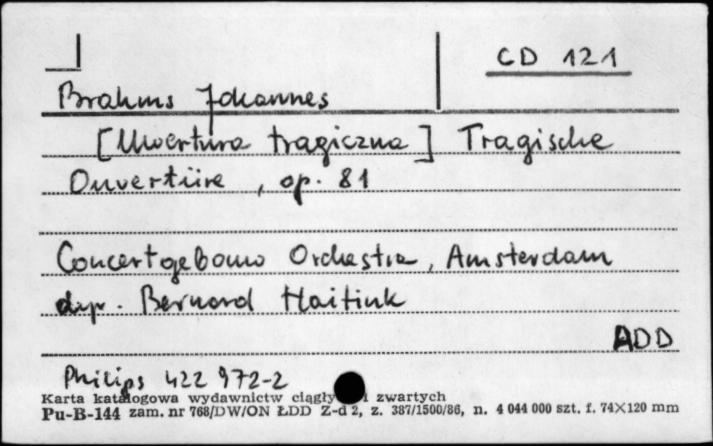 CD 121
Brahms Johannes
[Uwertura tragiczna] Tragische
Ouvertüre, op. 81
Concertgebouw Orchestra, Amsterdam
dyr. Bernard Haitink
ADD
Philips 422 972-2
Karta katalogowa wydawnictw ciągły i zwartych
Pu-B-144 zam. nr 768/DW/ON ŁDD Z-d 2, z. 387/1500/86, n. 4 044 000 szt. f. 74×120 mm